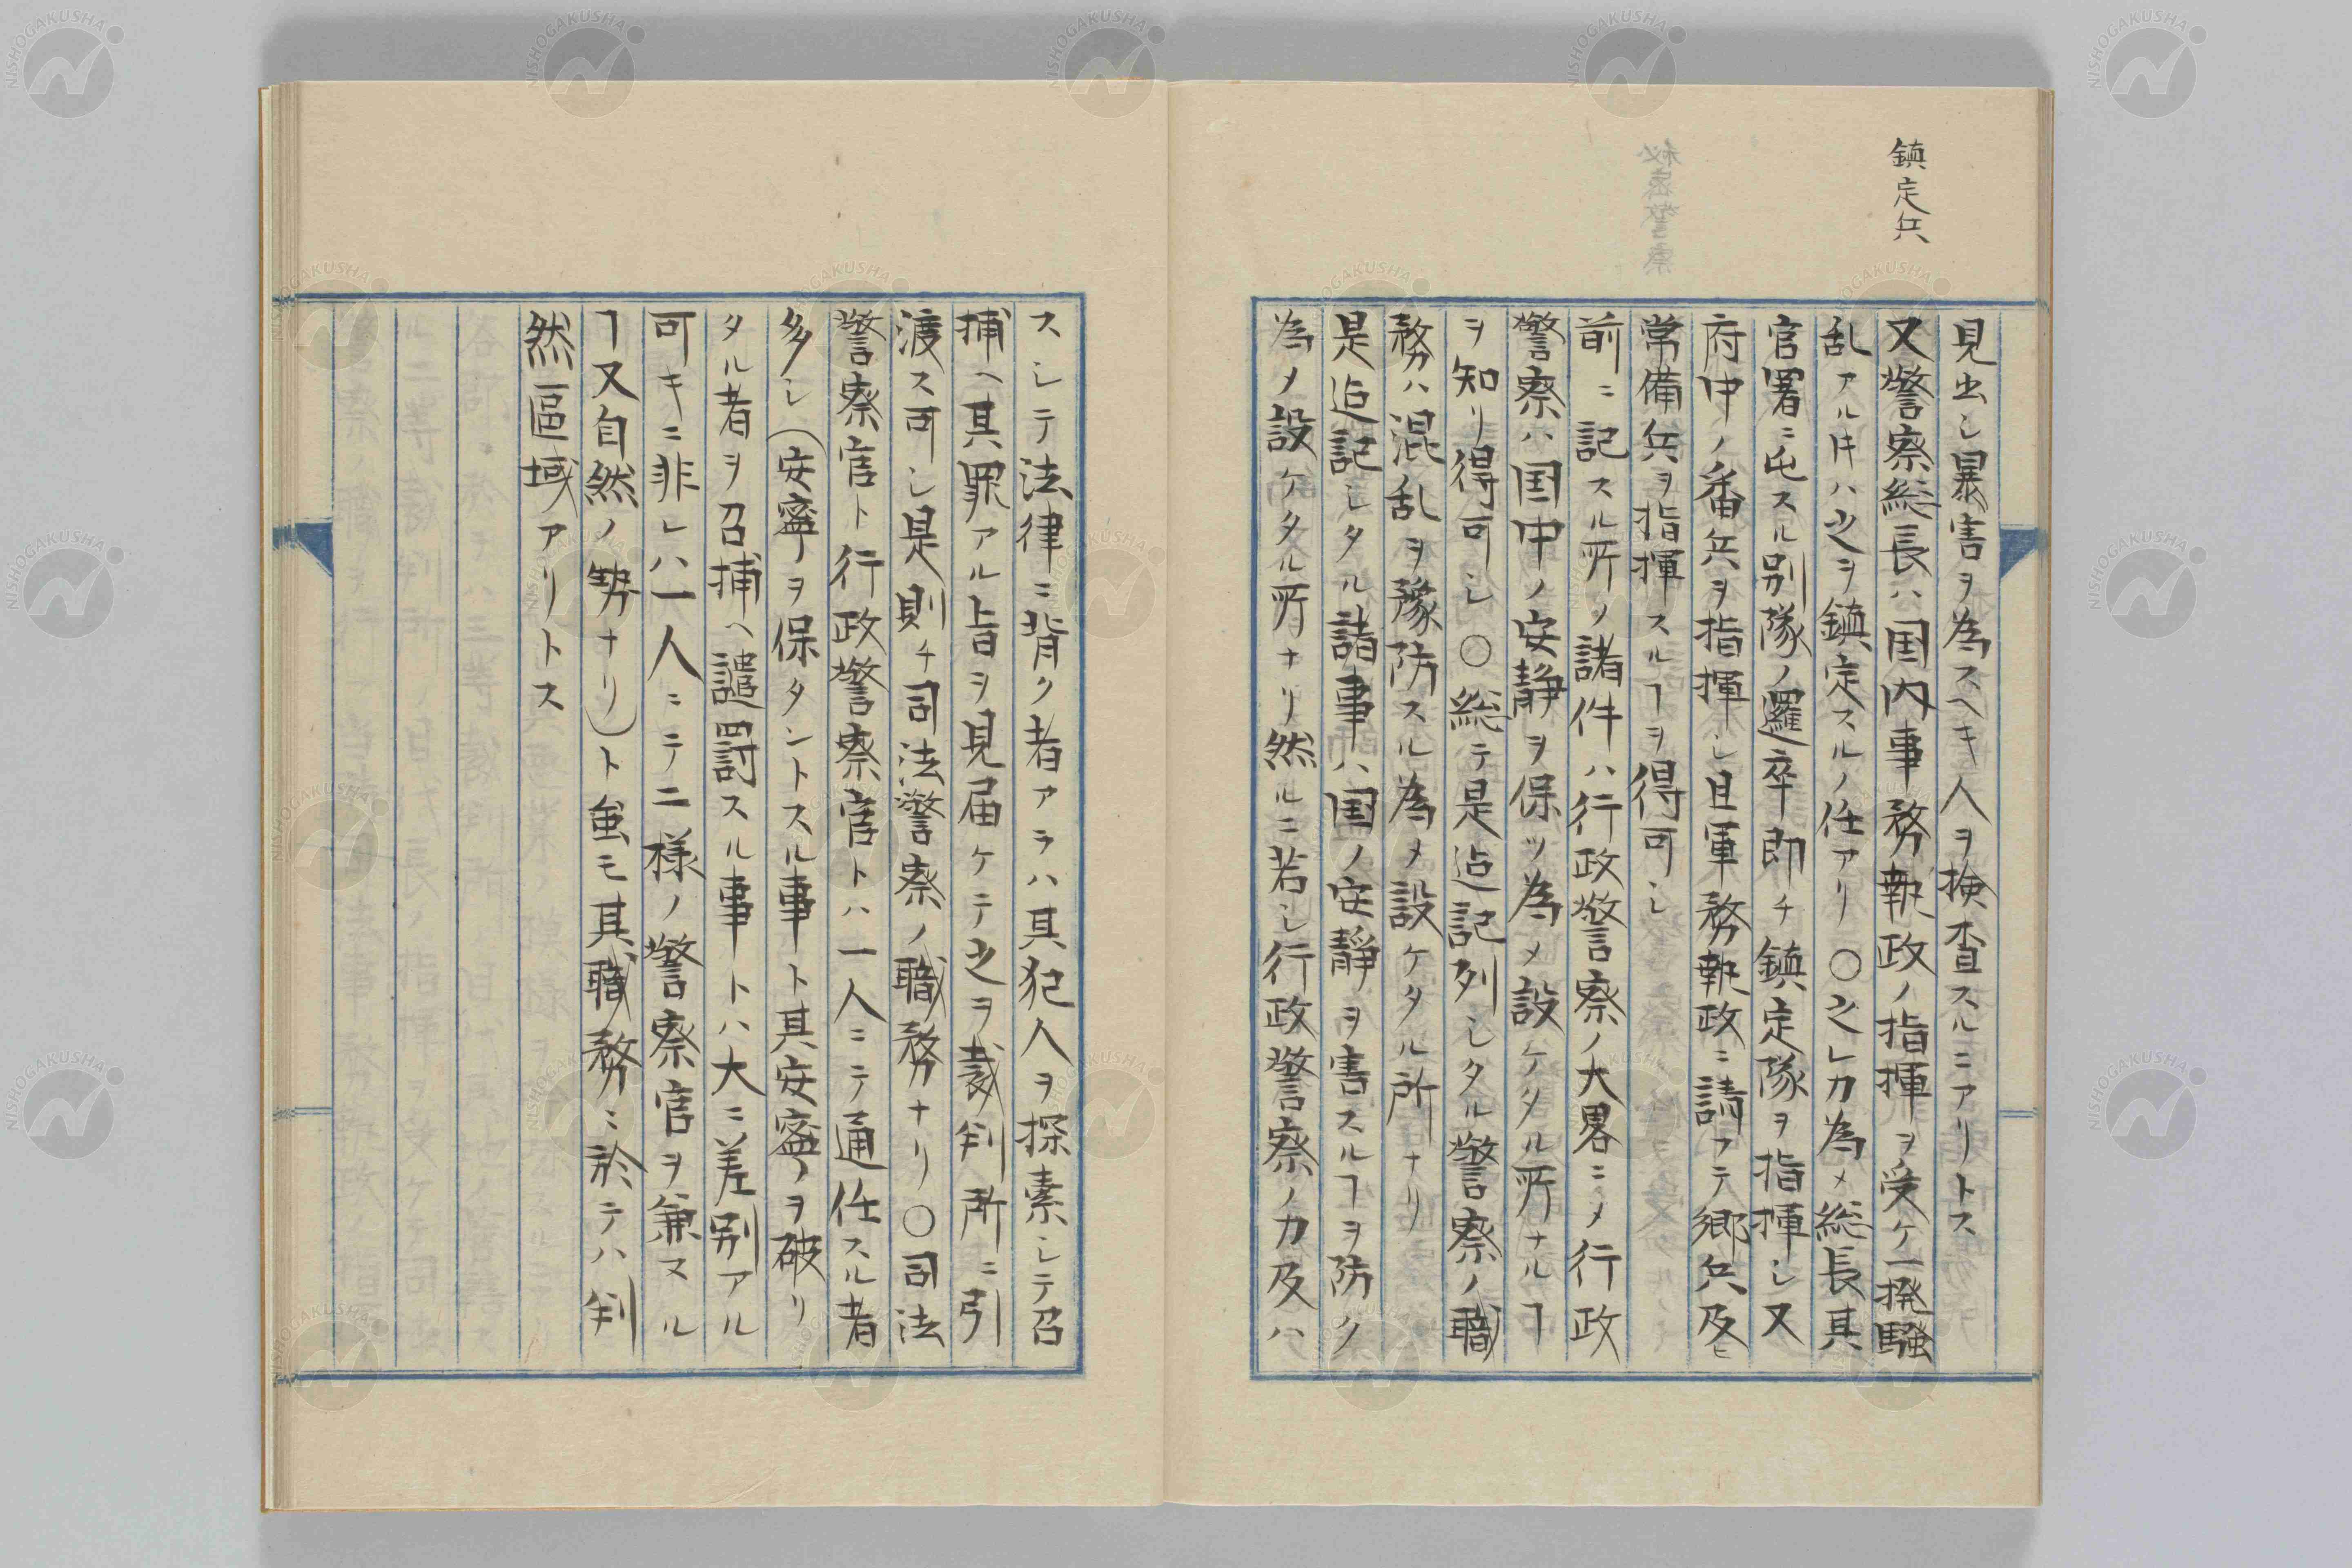 鎮定兵
見出シ暴害ヲ為スヘキ人ヲ検査スルニアリトス
又警察総長ハ国内事務執政ノ指揮ヲ受ケ一揆騒
乱アルキハ之ヲ鎮定スルノ任アリ〇之レカ為メ総長其
官署ニ屯スル別隊ノ邏卒即チ鎮定隊ヲ指揮シ又
府中ノ番兵ヲ指揮シ且軍務執政ニ請フテ郷兵及ヒ
常備兵ヲ指揮スルヿヲ得可シ
前ニ記スル所ノ諸件ハ行政警察ノ大畧ニメ行政
警察ハ国中ノ安静ヲ保ツ為メ設ケタル所ナルヿ
ヲ知リ得可シ〇総テ是迄記列シタル警察ノ職
務ハ混乱ヲ豫防スル為メ設ケタル所ナリ
是迄記シタル諸事ハ国ノ安静ヲ害スルヿヲ防ク
為メ設ケタル所ナリ然ルニ若シ行政警察ノ力及ハ
スシテ法律ニ背ク者アラハ其犯人ヲ探索シテ召
捕ヘ其罪アル旨ヲ見届ケテ之ヲ裁判所ニ引
渡ス可シ是則チ司法警察ノ職務ナリ〇司法
警察官ト行政警察官トハ一人ニテ通任スル者
多シ(安寧ヲ保タントスル事ト其安寧ヲ破リ
タル者ヲ召捕ヘ譴罰スル事トハ大ニ差別アル
可キニ非レハ一人ニテ二様ノ警察官ヲ兼ヌル
ヿ又自然ノ勢ナリ)ト虽モ其職務ニ於テハ判
然區域アリトス
NISHOGAKUSHA